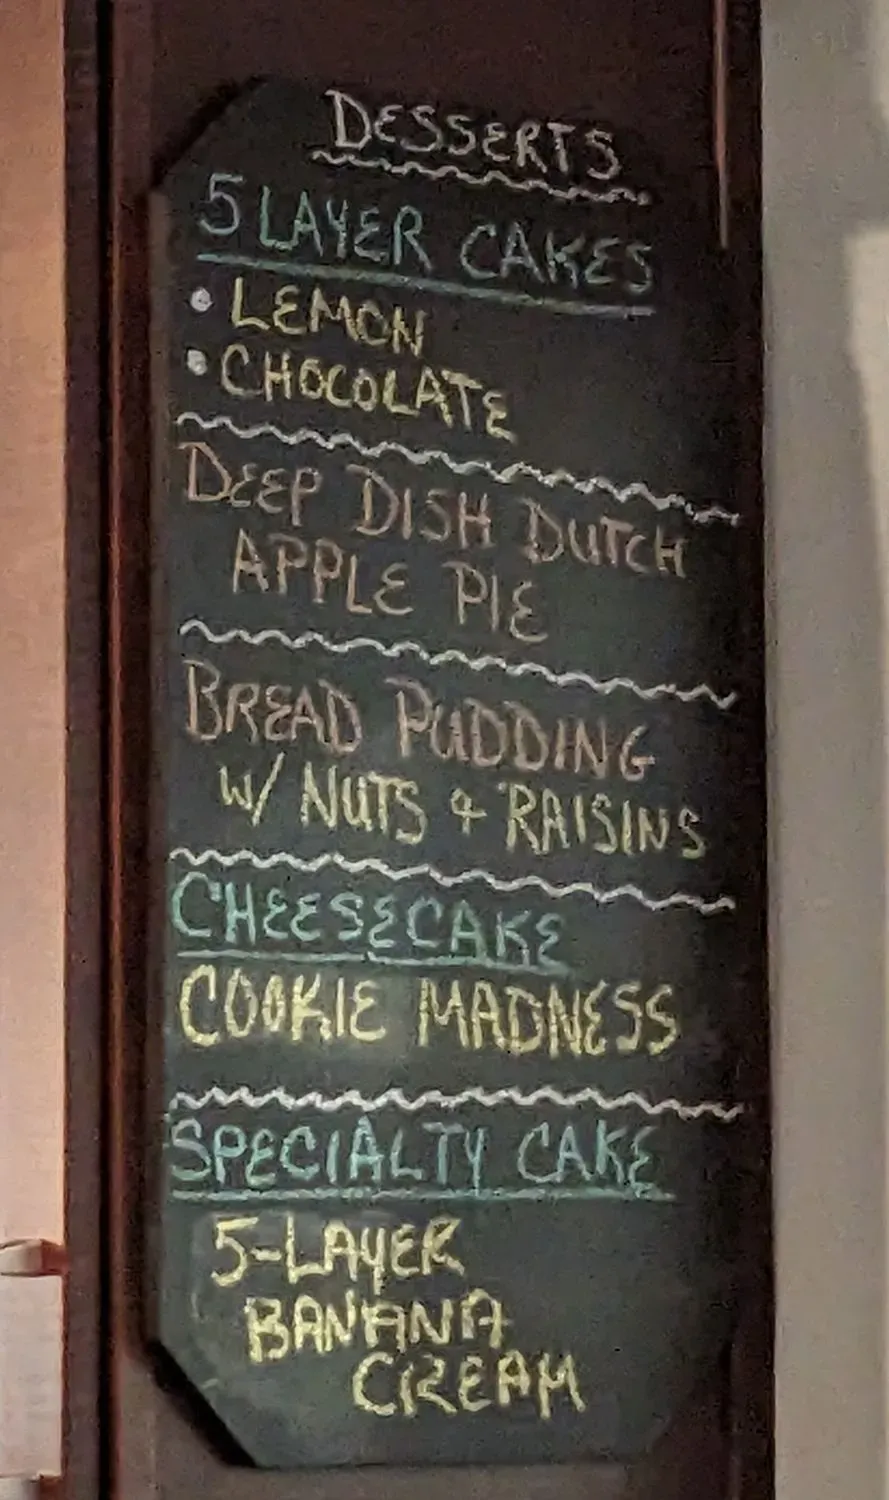 DESSERTS
5 LAYER CAKES
• LEMON
• CHOCOLATE
DEEP DISH DUTCH
APPLE PIE
BREAD PUDDING
W/ NUTS & RAISINS
CHEESECAKE
COOKIE MADNESS
SPECIALTY CAKE
5-LAYER
BANANA
CREAM